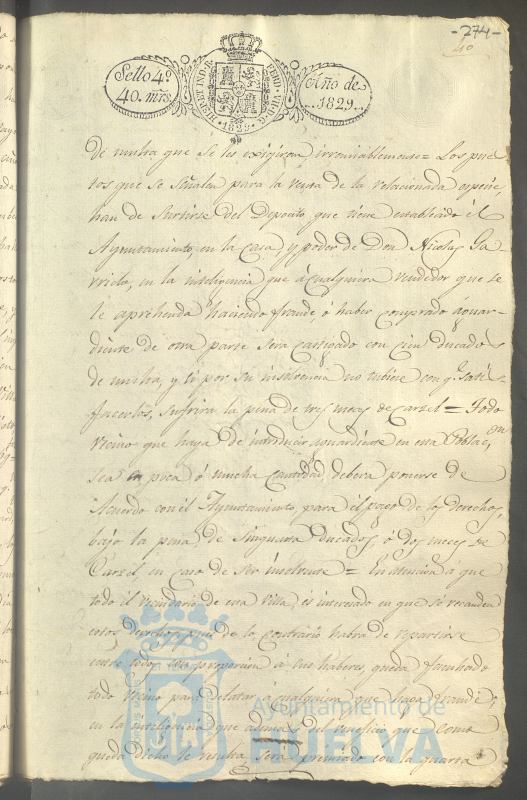 -274-
40
Sello 4º
40. mrs.
HISP. ET IND. R. FERD. VII. D. G.
1829
Año de
1829.
de multa que se les exigiran irremisiblemente = Los pues
tos que se señalan para la venta de la relacionada especie,
han de surtirse del Deposito que tiene establecido el
Ayuntamiento, en la casa, y poder de Don Nicolas Ga
rrido, en la inteligencia que á cualquiera vendedor que se
le aprehenda haciendo fraude, ó haber comprado aguar-
diente de otra parte sera castigado con cien ducados
de multa, y si por su insolvencia no tubiese con q. satis
facerlos, sufrira la pena de tres meses de Carzel = Todo
Vecino que haya de introducir aguardiente en esta Poblac.on
sea en poca ó mucha Cantidad, debera ponerse de
Acuerdo con el Ayuntamiento para el pago de los derechos,
bajo la pena de Sinquenta Ducados, ó dos meces de
Carzel en caso de ser insolvente = En atencion a que
todo el vecindario de esta Villa, és interesado en que se recauden
estos derechos, pues de lo contrario habra de repartirse
entre todos con proporcion á sus haberes, queda facultado
todo vecino para delatar á qualquiera que haga fraude,
en la inteligencia que ademas del beneficio que como
queda dicho le resulta, sera premiado con la quarta
Ayuntamiento de
HUELVA